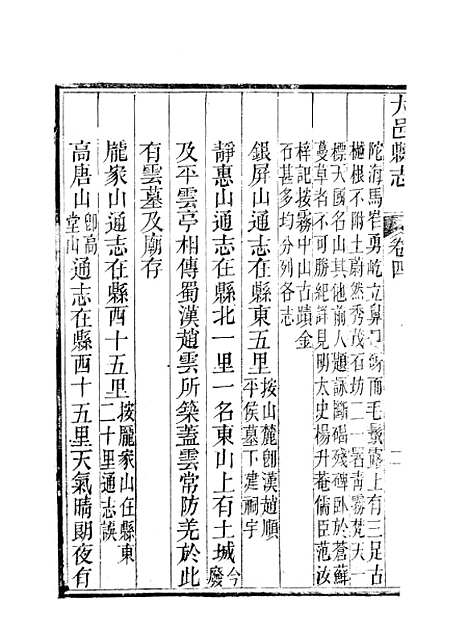 大邑縣志 卷四
陀海馬岩勇屹立鼻口觴而毛鬣露上有三足古
栀根不附土蔚然秀茂石坊二一署靑霧梵天一
標天國名山其他前人題詠斷碣殘碑臥於蒼蘚
蔓草者不可勝紀詳見明太史楊升菴儒臣范汝
梓記按霧中山古蹟金
石甚多均分列各志
銀屏山通志在縣東五里按山麓卽漢趙順
平侯墓下建祠宇
靜惠山通志在縣北一里一名東山上有土城今
廢
及平雲亭相傳蜀漢趙雲所築蓋雲常防羌於此
有雲墓及廟存
龐家山通志在縣西十五里按龐家山在縣東
二十里通志誤
高唐山卽高
堂山通志在縣西十五里天氣晴朗夜有